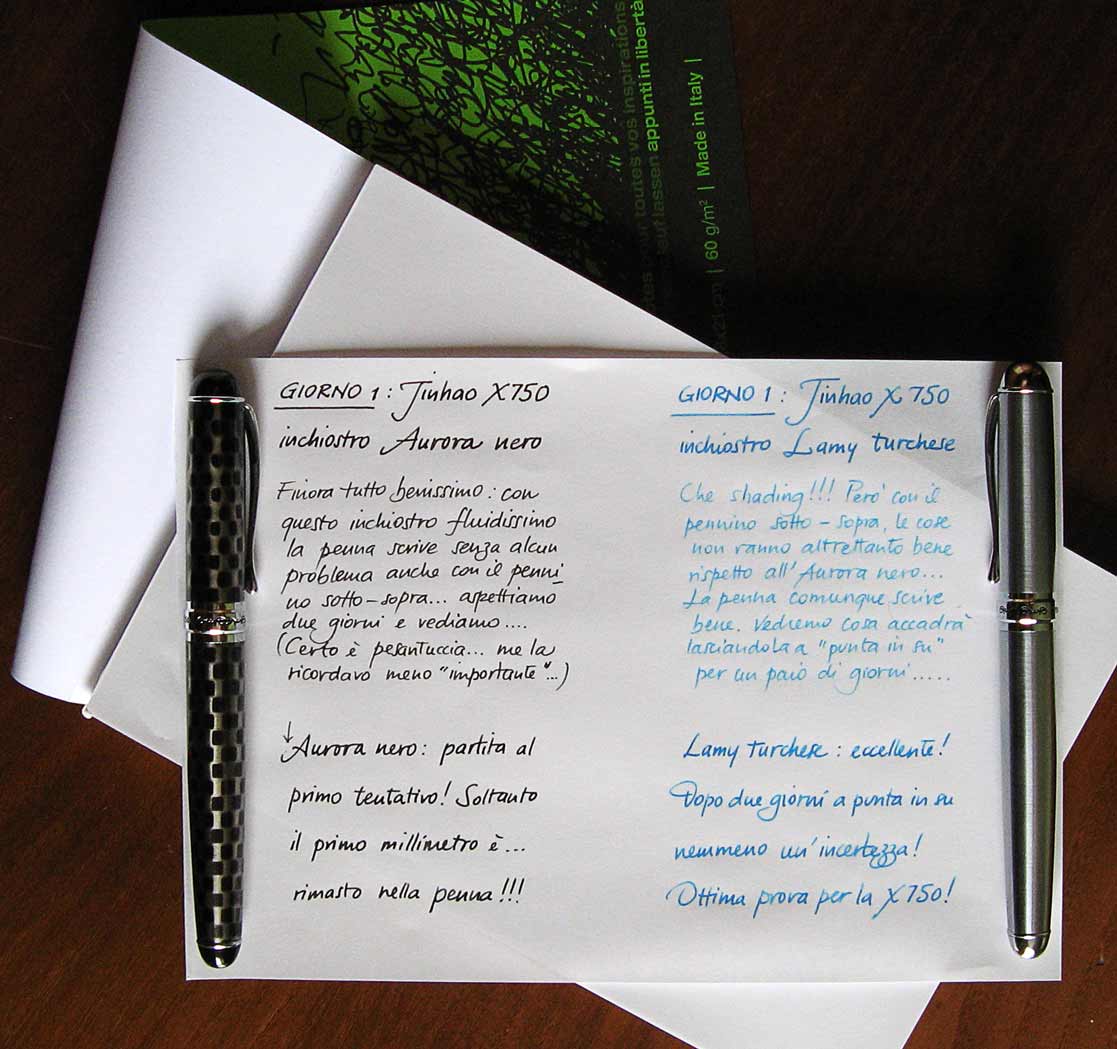 toutes vos inspirations
auflassen appunti in libertà
60 g/m² | Made in Italy |
GIORNO 1: Jinhao X750
inchiostro Aurora nero
Finora tutto benissimo: con
questo inchiostro fluidissimo
la penna scrive senza alcun
problema anche con il penni
no sotto-sopra... aspettiamo
due giorni e vediamo....
(Certo è pesantuccia... me la
ricordavo meno "importante"...)
↓Aurora nero: partita al
primo tentativo! Soltanto
il primo millimetro è...
rimasto nella penna!!!
GIORNO 1: Jinhao X750
inchiostro Lamy turchese
Che shading!!! Però con il
pennino sotto-sopra, le cose
non vanno altrettanto bene
rispetto all'Aurora nero...
La penna comunque scrive
bene. Vedremo cosa accadrà
lasciandola a "punta in su"
per un paio di giorni.....
Lamy turchese: eccellente!
Dopo due giorni a punta in su
nemmeno un'incertezza!
Ottima prova per la X750!